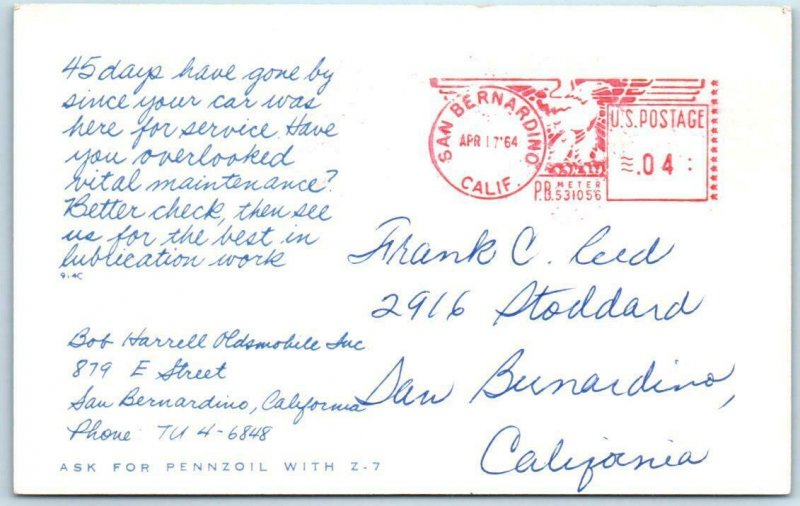 45 days have gone by
since your car was
here for service. Have
you overlooked
vital maintenance?
Better check, then see
us for the best in
lubrication work
9-4C
Bob Harrell Oldsmobile Inc
879 E Street
San Bernardino, California
Phone TU 4-6848
ASK FOR PENNZOIL WITH Z-7
SAN BERNARDINO
APR 17 '64
CALIF.
P.B. METER
531056
U.S. POSTAGE
.04
Frank C.
2916 Stoddard
San Bernardino,
California